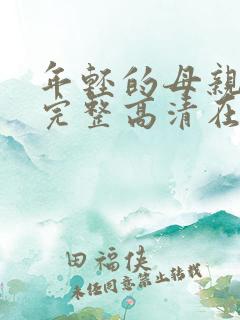 年轻的母亲
完整高清在
田福侠
未经同意禁止转载